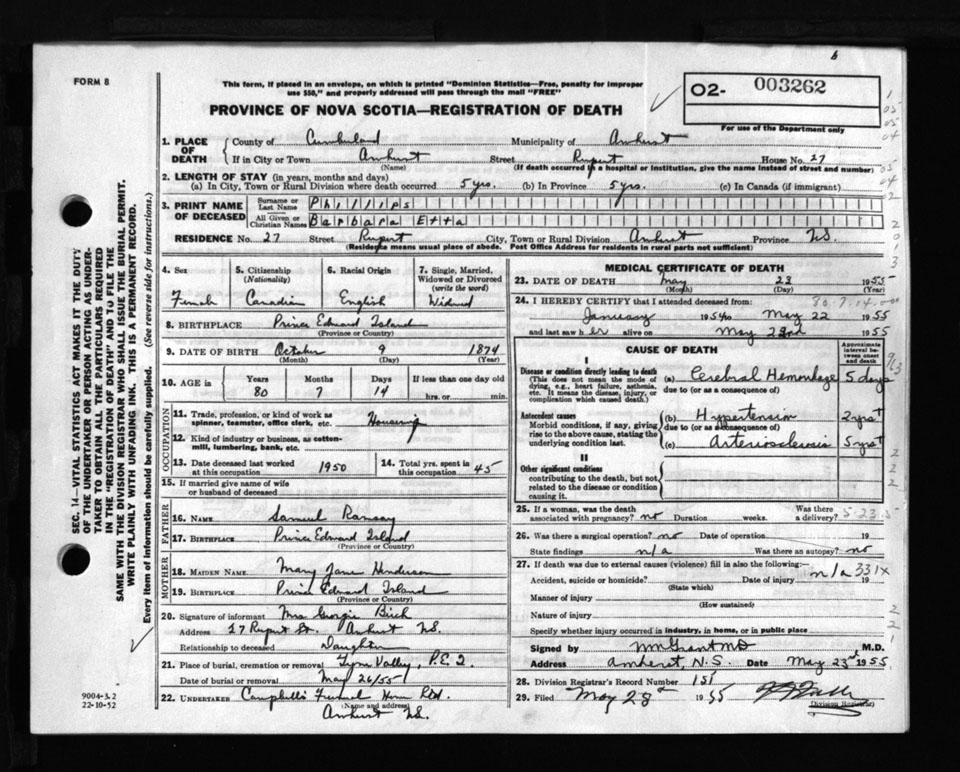 FORM 8
This form, if placed in an envelope, on which is printed "Dominion Statistics—Free, penalty for improper
use $50," and properly addressed will pass through the mail "FREE"
PROVINCE OF NOVA SCOTIA—REGISTRATION OF DEATH
02- 003262
For use of the Department only
1. PLACE OF DEATH County of Cumberland Municipality of Amherst
If in City or Town Amherst Street Rupert House No. 27
(Name) (If death occurred in a hospital or institution, give the name instead of street and number)
2. LENGTH OF STAY (in years, months and days)
(a) In City, Town or Rural Division where death occurred 5 yrs. (b) In Province 5 yrs. (c) In Canada (if immigrant)
3. PRINT NAME OF DECEASED Surname or Last Name Phillips
All Given or Christian Names Barbara Etta
RESIDENCE No. 27 Street Rupert City, Town or Rural Division Amherst Province N.S.
(Residence means usual place of abode. Post Office Address for residents in rural parts not sufficient)
4. Sex Female
5. Citizenship (Nationality) Canadian
6. Racial Origin English
7. Single, Married, Widowed or Divorced (write the word) Widowed
8. BIRTHPLACE Prince Edward Island
(Province or Country)
9. DATE OF BIRTH October 9 1874
(Month) (Day) (Year)
10. AGE in Years 80 Months 7 Days 14 If less than one day old
hrs. or min.
OCCUPATION
11. Trade, profession, or kind of work as spinner, teamster, office clerk, etc.
12. Kind of industry or business, as cotton-mill, lumbering, bank, etc.
13. Date deceased last worked at this occupation 1950
14. Total yrs. spent in this occupation 45
15. If married give name of wife or husband of deceased
FATHER
16. NAME Samuel Ramsay
17. BIRTHPLACE Prince Edward Island
(Province or Country)
MOTHER
18. MAIDEN NAME Mary Jane Henderson
19. BIRTHPLACE Prince Edward Island
(Province or Country)
20. Signature of informant Mrs Georgie Birch
Address 27 Rupert St. Amherst N.S.
Relationship to deceased Daughter
21. Place of burial, cremation or removal Tyne Valley, P.E.I.
Date of burial or removal May 26/55
22. UNDERTAKER Campbells Funeral Home Rd.
(Name and address)
Amherst N.S.
MEDICAL CERTIFICATE OF DEATH
23. DATE OF DEATH May 23 1955
(Month) (Day) (Year)
24. I HEREBY CERTIFY that I attended deceased from: 80.7.14.00
January 1954 to May 22 1955
and last saw her alive on May 22nd 1955
CAUSE OF DEATH
Approximate interval between onset and death
I
Disease or condition directly leading to death
(This does not mean the mode of dying, e.g., heart failure, asthenia, etc. It means the disease, injury, or complication which caused death.)
(a) Cerebral Hemorrhage 5 days
due to (or as a consequence of)
Antecedent causes
Morbid conditions, if any, giving rise to the above cause, stating the underlying condition last.
(b) Hypertension 2 yrs+
due to (or as a consequence of)
(c) Arteriosclerosis 5 yrs+
II
Other significant conditions
contributing to the death, but not related to the disease or condition causing it.
25. If a woman, was the death associated with pregnancy? no Duration weeks. Was there a delivery?
5-23-5
26. Was there a surgical operation? no Date of operation 19
State findings n/a Was there an autopsy? no
27. If death was due to external causes (violence) fill in also the following:—
n/a 331x
Accident, suicide or homicide? Date of injury 19
Manner of injury
(How sustained)
Nature of injury
Specify whether injury occurred in industry, in home, or in public place
Signed by WM Grant MD M.D.
Address Amherst, N.S. Date May 23rd 1955
28. Division Registrar's Record Number 151
29. Filed May 28 1955
Division Registrar
SEC. 14—VITAL STATISTICS ACT MAKES IT THE DUTY
OF THE UNDERTAKER OR PERSON ACTING AS UNDERTAKER TO OBTAIN ALL THE PARTICULARS REQUIRED
IN THE "REGISTRATION OF DEATH" AND TO FILE THE
SAME WITH THE DIVISION REGISTRAR WHO SHALL ISSUE THE BURIAL PERMIT.
WRITE PLAINLY WITH UNFADING INK. THIS IS A PERMANENT RECORD.
Every item of information should be carefully supplied. (See reverse side for instructions.)
9004-3.2
22-10-52